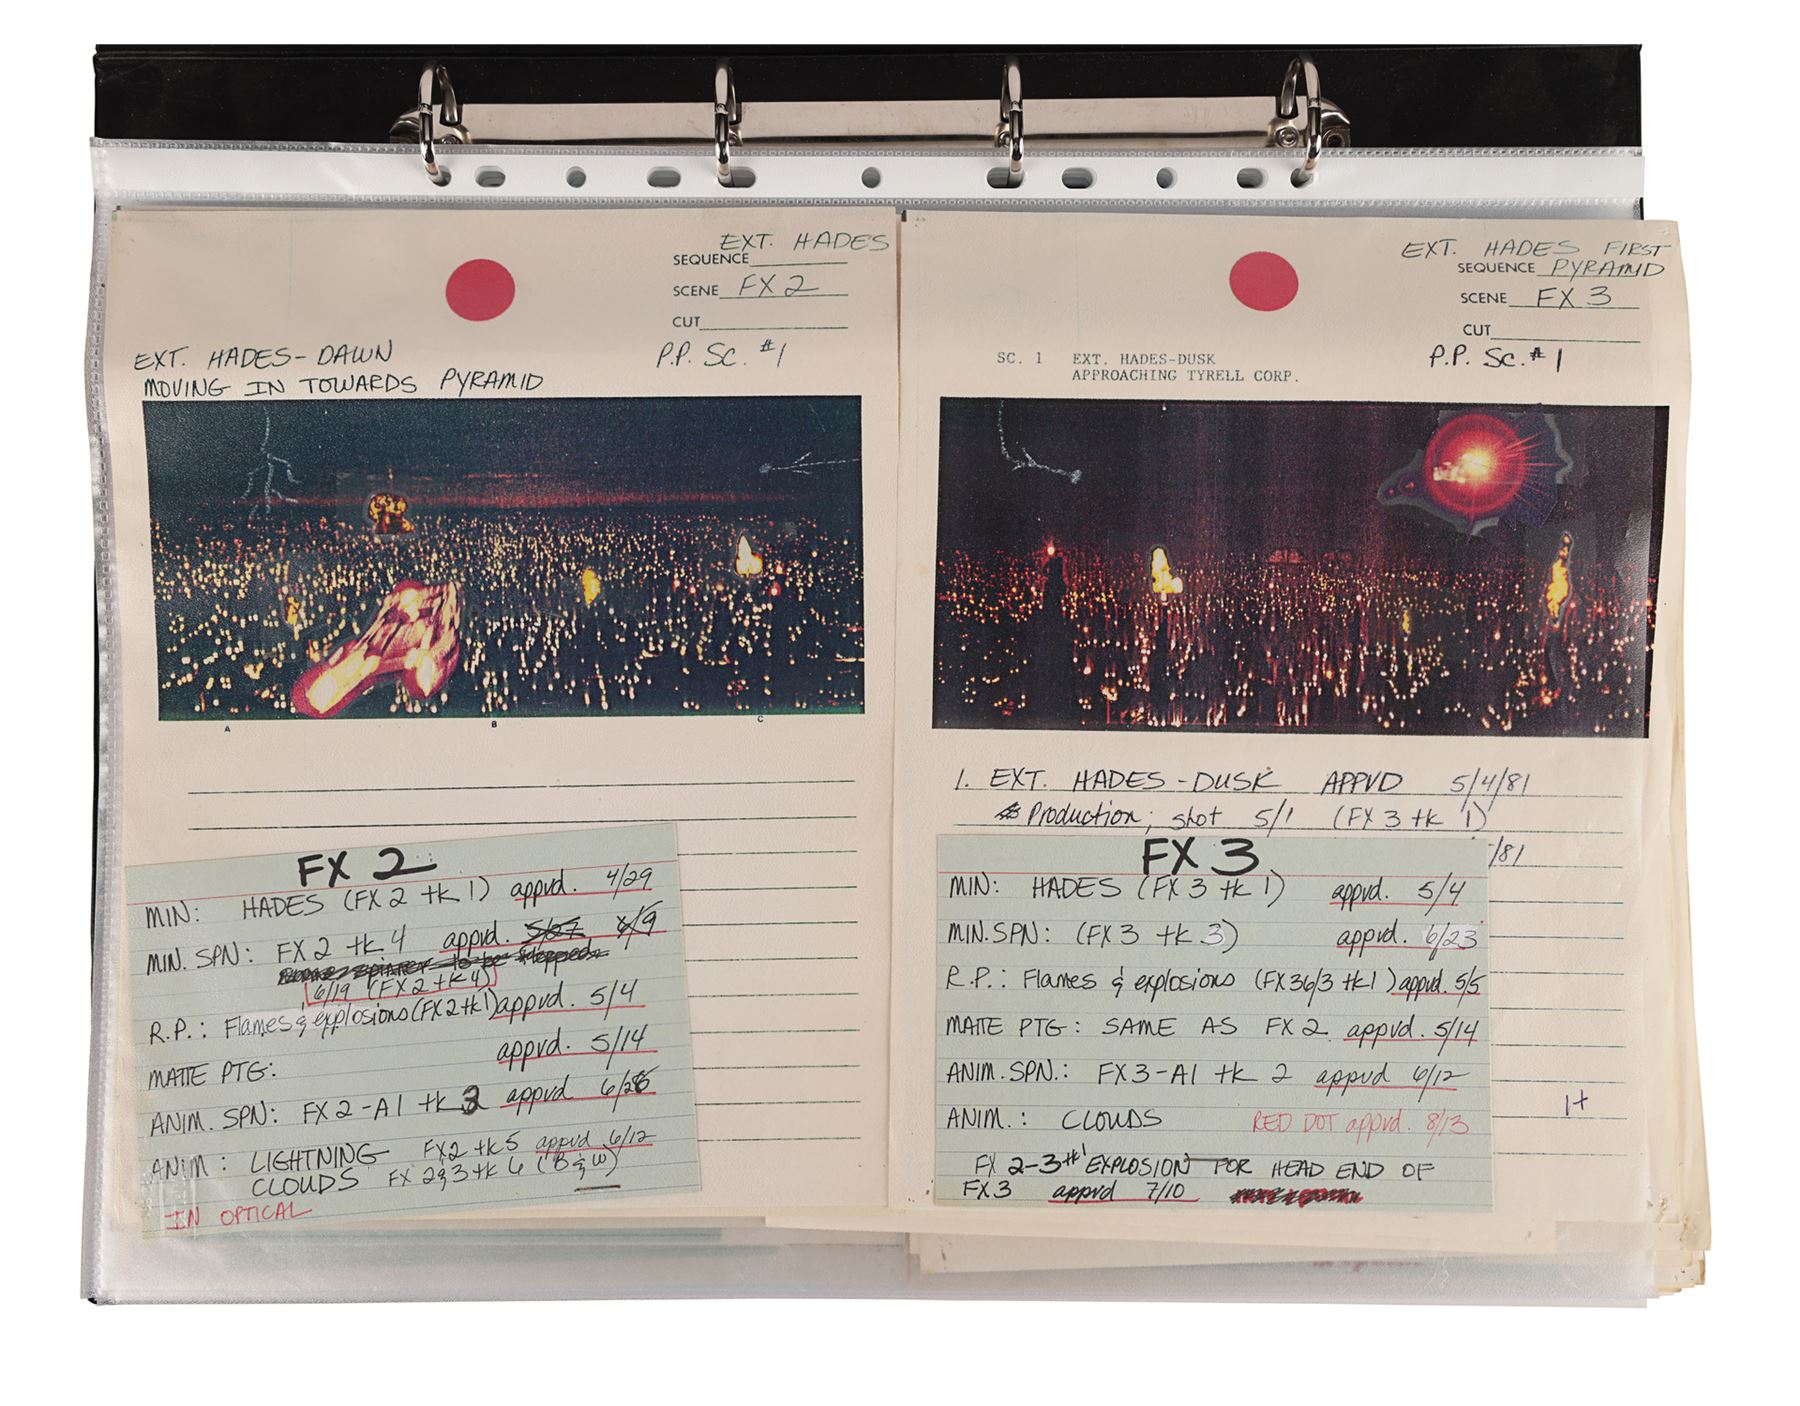 EXT. HADES
SEQUENCE
SCENE FX 2
CUT
P.P. SC. #1
EXT. HADES-DAWN
MOVING IN TOWARDS PYRAMID
A B C
FX 2
MIN: HADES (FX 2 tk 1) appvd. 4/29
MIN. SPN: FX 2 tk 4 appvd.
6/19 (FX 2 tk 4)
R.P.: Flames & explosions (FX 2 tk 1) appvd. 5/4
MATTE PTG: appvd. 5/14
ANIM. SPN: FX 2-A1 tk 3 appvd
ANIM: LIGHTNING FX2 tk 5 appvd 6/12
CLOUDS FX 2&3 tk 6 (B&W)
IN OPTICAL
EXT. HADES FIRST
SEQUENCE PYRAMID
SCENE FX 3
CUT
P.P. SC. #1
SC. 1 EXT. HADES-DUSK
APPROACHING TYRELL CORP.
1. EXT. HADES-DUSK APPVD 5/4/81
Production; shot 5/1 (FX 3 tk 1)
/81
FX 3
MIN: HADES (FX 3 tk 1) appvd. 5/4
MIN. SPN: (FX 3 tk 3) appvd. 6/23
R.P.: Flames & explosions (FX 36/3 tk 1) appvd. 5/5
MATTE PTG: SAME AS FX 2 appvd. 5/14
ANIM. SPN.: FX 3-A1 tk 2 appvd 6/12
ANIM.: CLOUDS RED DOT appvd. 8/13
FX 2-3 tk 1 EXPLOSION FOR HEAD END OF
FX 3 appvd 7/10
1+